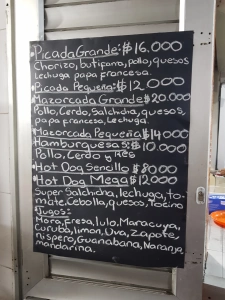 •Picada Grande:$16.000
Chorizo, butifarra, pollo, quesos
Lechuga papa francesa.
•Picada Pequeña:$12000
Mazorcada Grande$20.000
Pollo, Cerdo, Salchicha, quesos,
papa francesa, Lechuga.
•Mazorcada Pequeña$14000
Hamburguesas:$10.000
Pollo, Cerdo y Res
•Hot Dog Sencillo $8000
•Hot Dog Mega$12000
Super Salchicha, lechuga, to-
mate, Cebolla, quesos, Tocino
•Jugos:
Mora, Fresa, lulo, Maracuya,
Curuba, limon, Uva, Zapote,
Nispero, Guanabana, Naranja
mandarina.